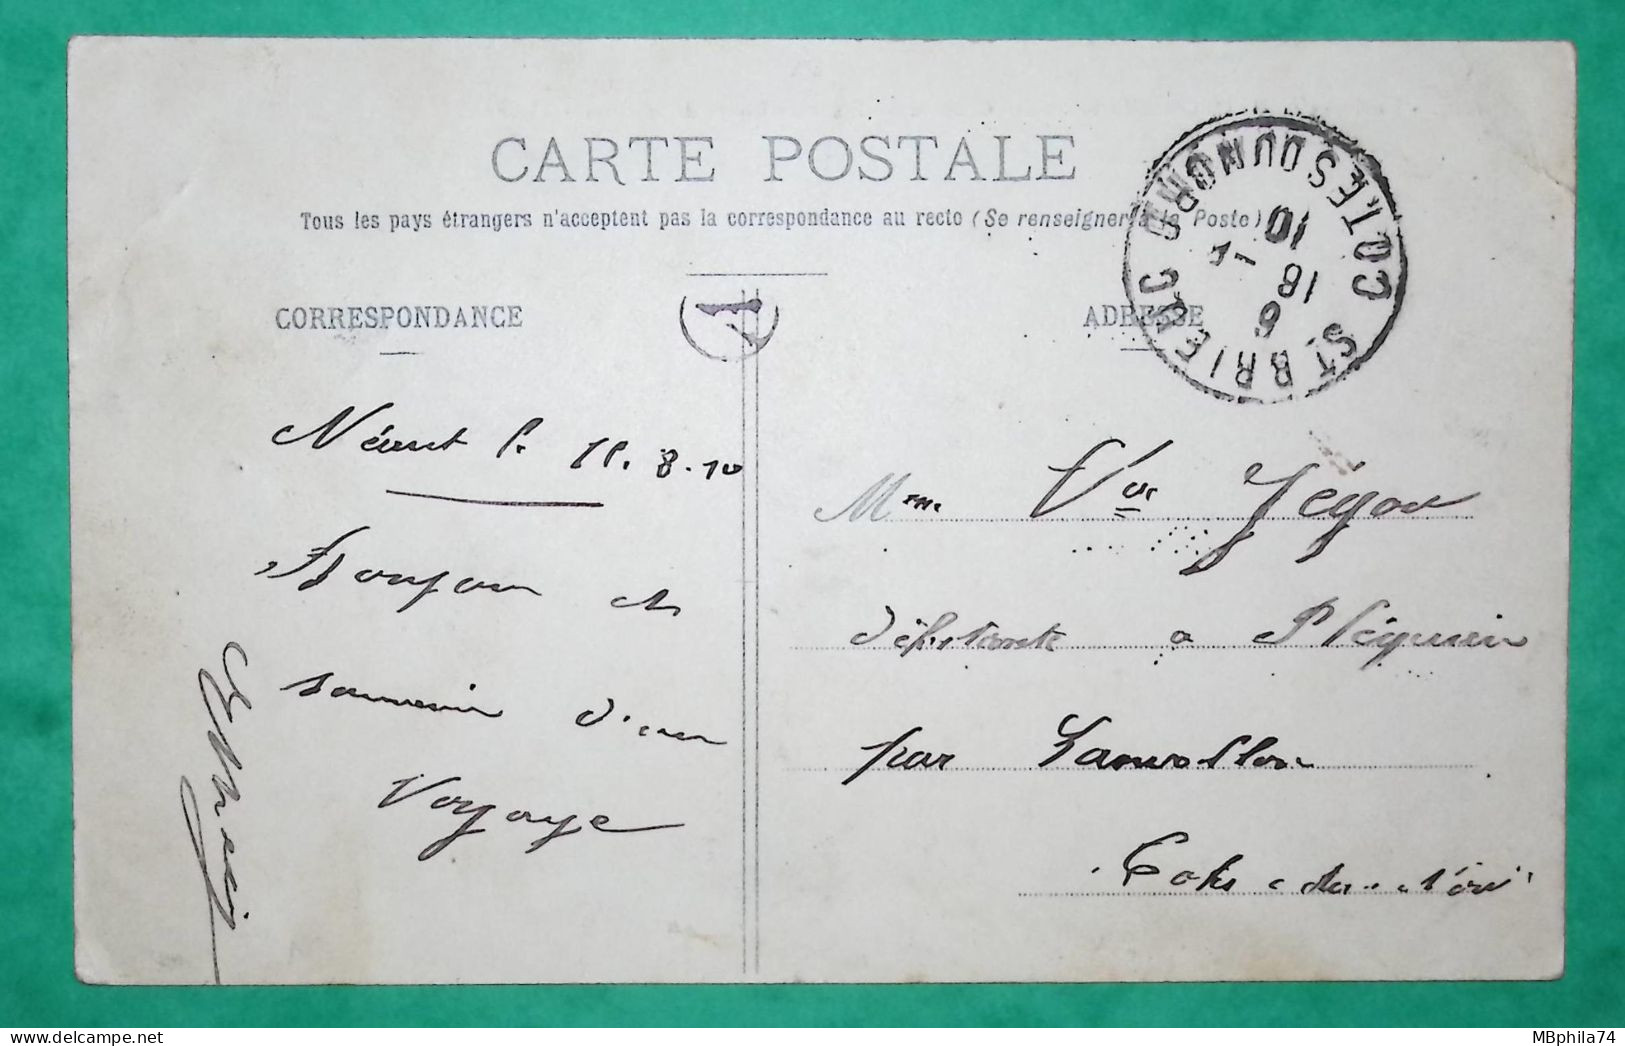 CARTE POSTALE
Tous les pays étrangers n'acceptent pas la correspondance au recto (Se renseigner à la Poste)
CORRESPONDANCE
1
ADRESSE
ST BRIEUC COTES DU NORD
6
18 - 8
10
Néant l. 8.10
Bonjour et
souvenir d'un
Voyage
Mme Vve Jégou
débitante a Pléguien
par Lanvollon
Cotes-du-Nord
MBphila74